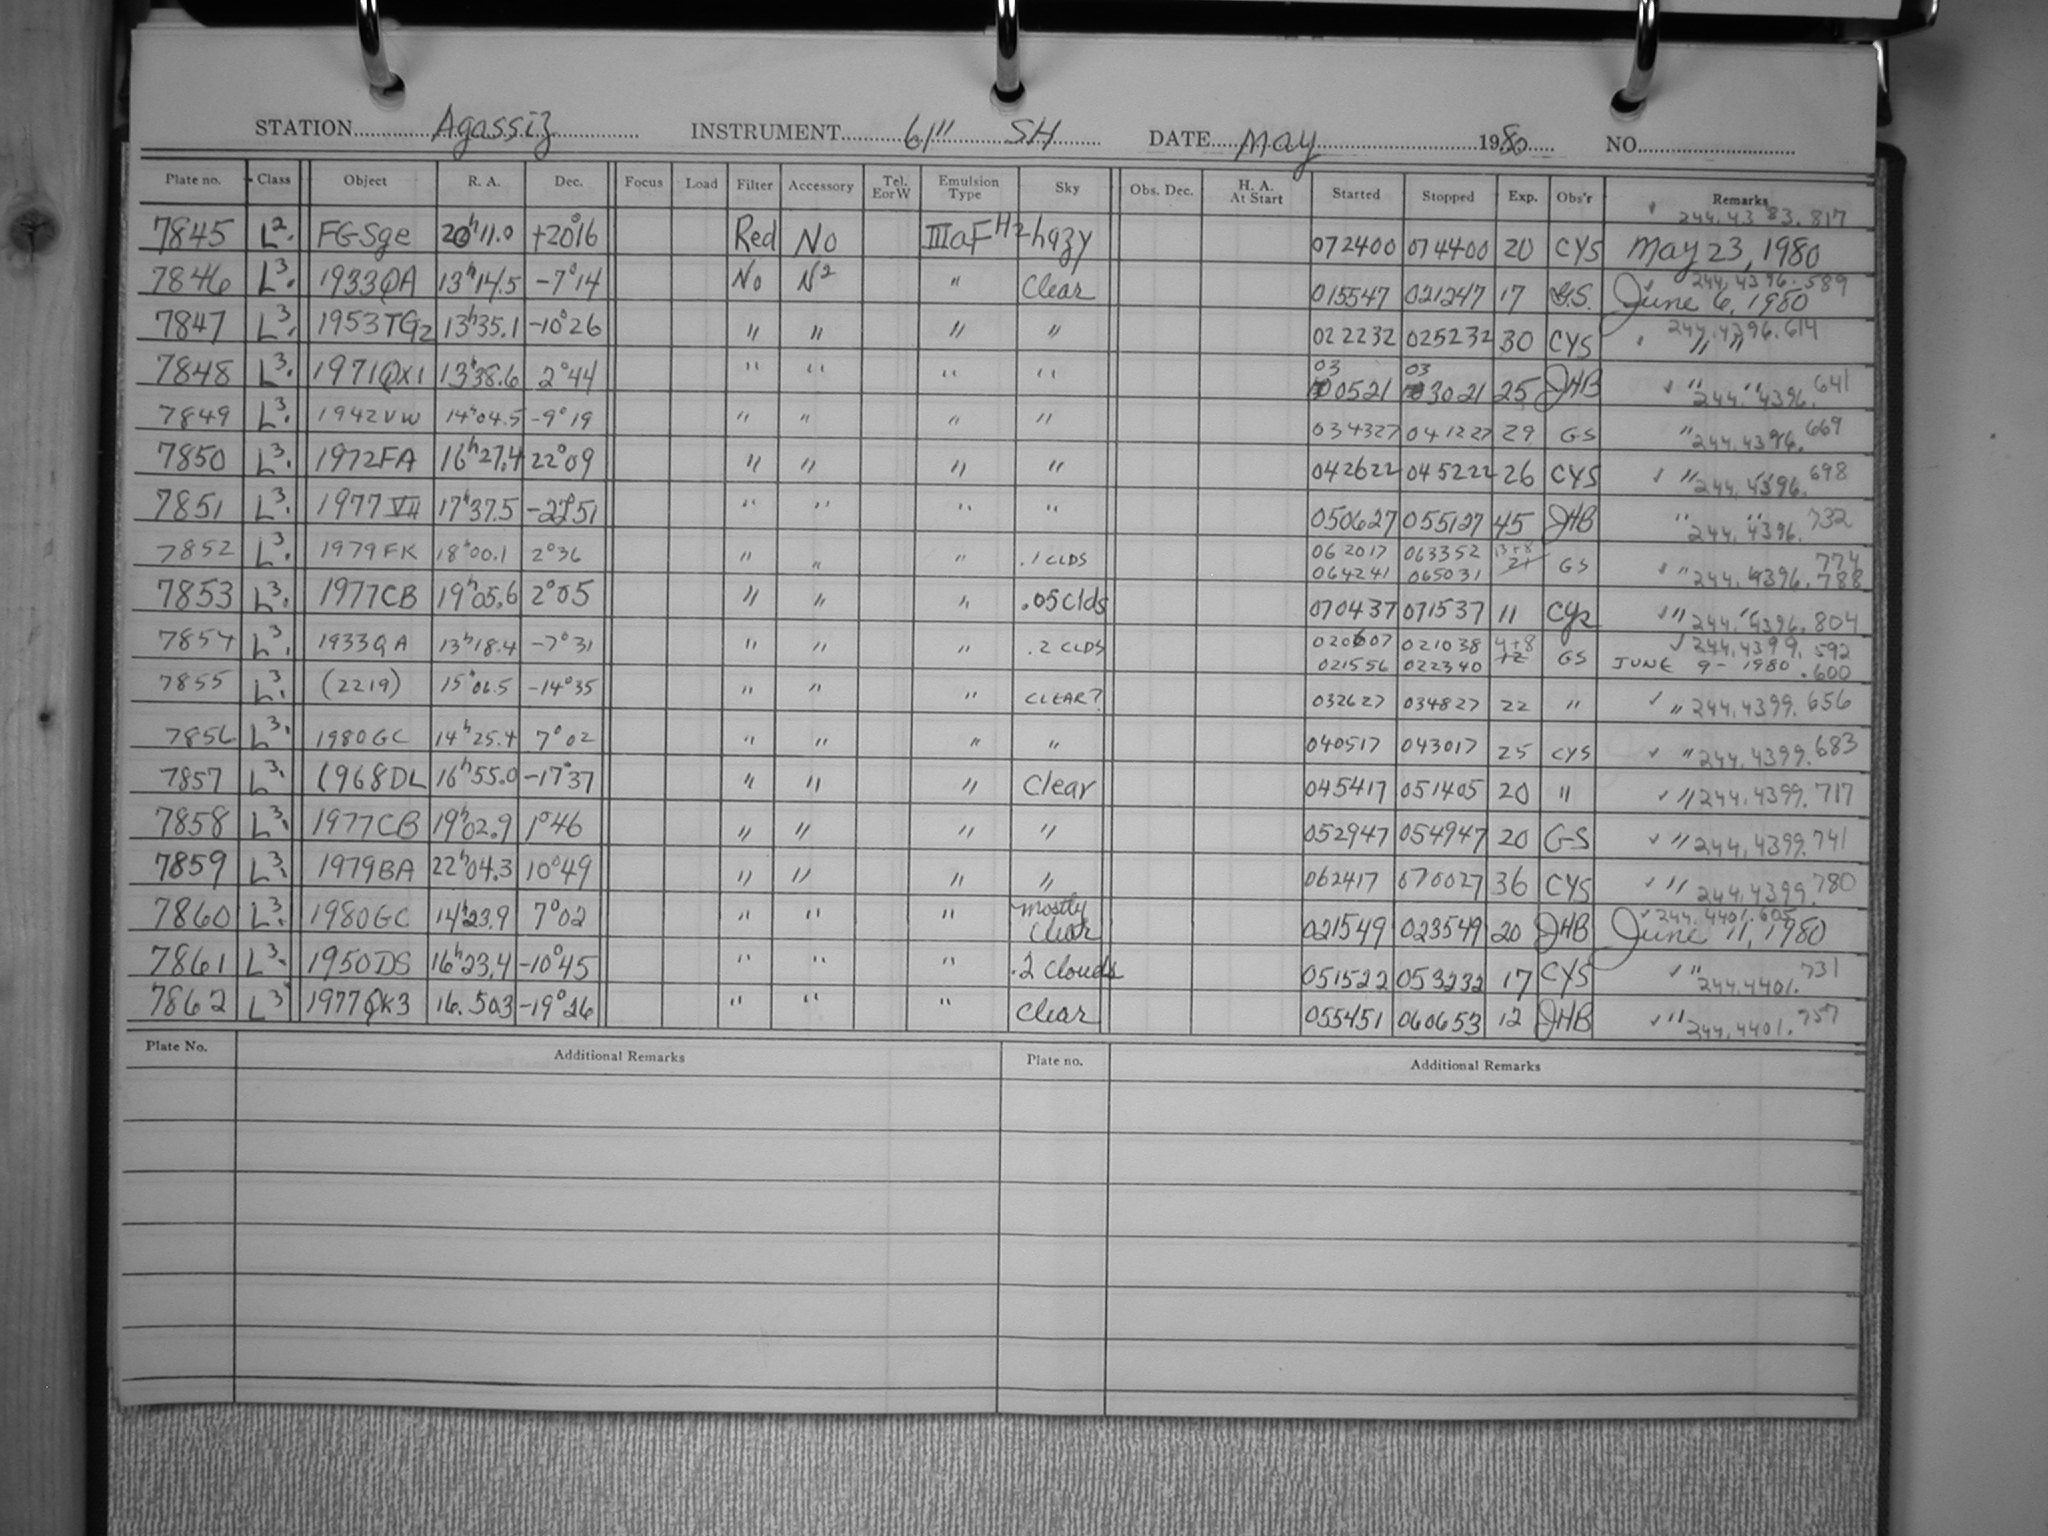 STATION Agassiz INSTRUMENT 61" SH DATE May 1980 NO.
Plate no. Class Object R. A. Dec. Focus Load Filter Accessory Tel. E or W Emulsion Type Sky Obs. Dec. H. A. At Start Started Stopped Exp. Obs'r Remarks
7845 L2. FGSge 20h11.0 +20°16 Red No IIIaF H2 hazy 072400 074400 20 CYS 244,4383.817 May 23, 1980
7846 L3. 1933QA 13h14.5 -7°14 No N2 " Clear 015547 021247 17 G.S. 244,4396.589 June 6, 1980
7847 L3. 1953TG2 13h35.1 -10°26 " " " " 022232 025232 30 CYS 244,4396.614 " "
7848 L3. 1971QX1 13h38.6 2°44 " " " " 03 0521 03 3021 25 JHB " " 244,4396.641
7849 L3. 1942VW 14h04.5 -9°19 " " " " 034327 041227 29 GS " 244,4396.669
7850 L3. 1972FA 16h27.4 22°09 " " " " 042622 045222 26 CYS " " 244,4396.698
7851 L3. 1977VII 17h37.5 -22°51 " " " " 050627 055127 45 JHB " " 244,4396.732
7852 L3. 1979FK 18h00.1 2°36 " " " .1 CLDS 062017 063352 13+8 21 GS " 244,4396.774
064241 065031 .788
7853 L3. 1977CB 19h05.6 2°05 " " " .05 Clds 070437 071537 11 CYS " " 244,4396.804
7854 L3. 1933QA 13h18.4 -7°31 " " " .2 CLDS 020607 021038 4+8 12 GS 244,4399.592
021556 022340 JUNE 9 - 1980 .600
7855 L3. (2219) 15h06.5 -14°35 " " " CLEAR? 032627 034827 22 " " 244,4399.656
7856 L3. 1980GC 14h25.4 7°02 " " " " 040517 043017 25 CYS " 244,4399.683
7857 L3. 1968DL 16h55.0 -17°37 " " " Clear 045417 051405 20 " " 244,4399.717
7858 L3. 1977CB 19h02.9 1°46 " " " " 052947 054947 20 GS " 244,4399.741
7859 L3. 1979BA 22h04.3 10°49 " " " " 062417 070027 36 CYS " 244,4399.780
7860 L3. 1980GC 14h23.9 7°02 " " " mostly clear 021549 023549 20 JHB 244,4401.605 June 11, 1980
7861 L3. 1950DS 16h23.4 -10°45 " " " .2 Clouds 051522 053232 17 CYS " 244,4401.731
7862 L3 1977QK3 16.50.3 -19°26 " " " Clear 055451 060653 12 JHB " 244,4401.757
Plate No. Additional Remarks Plate no. Additional Remarks